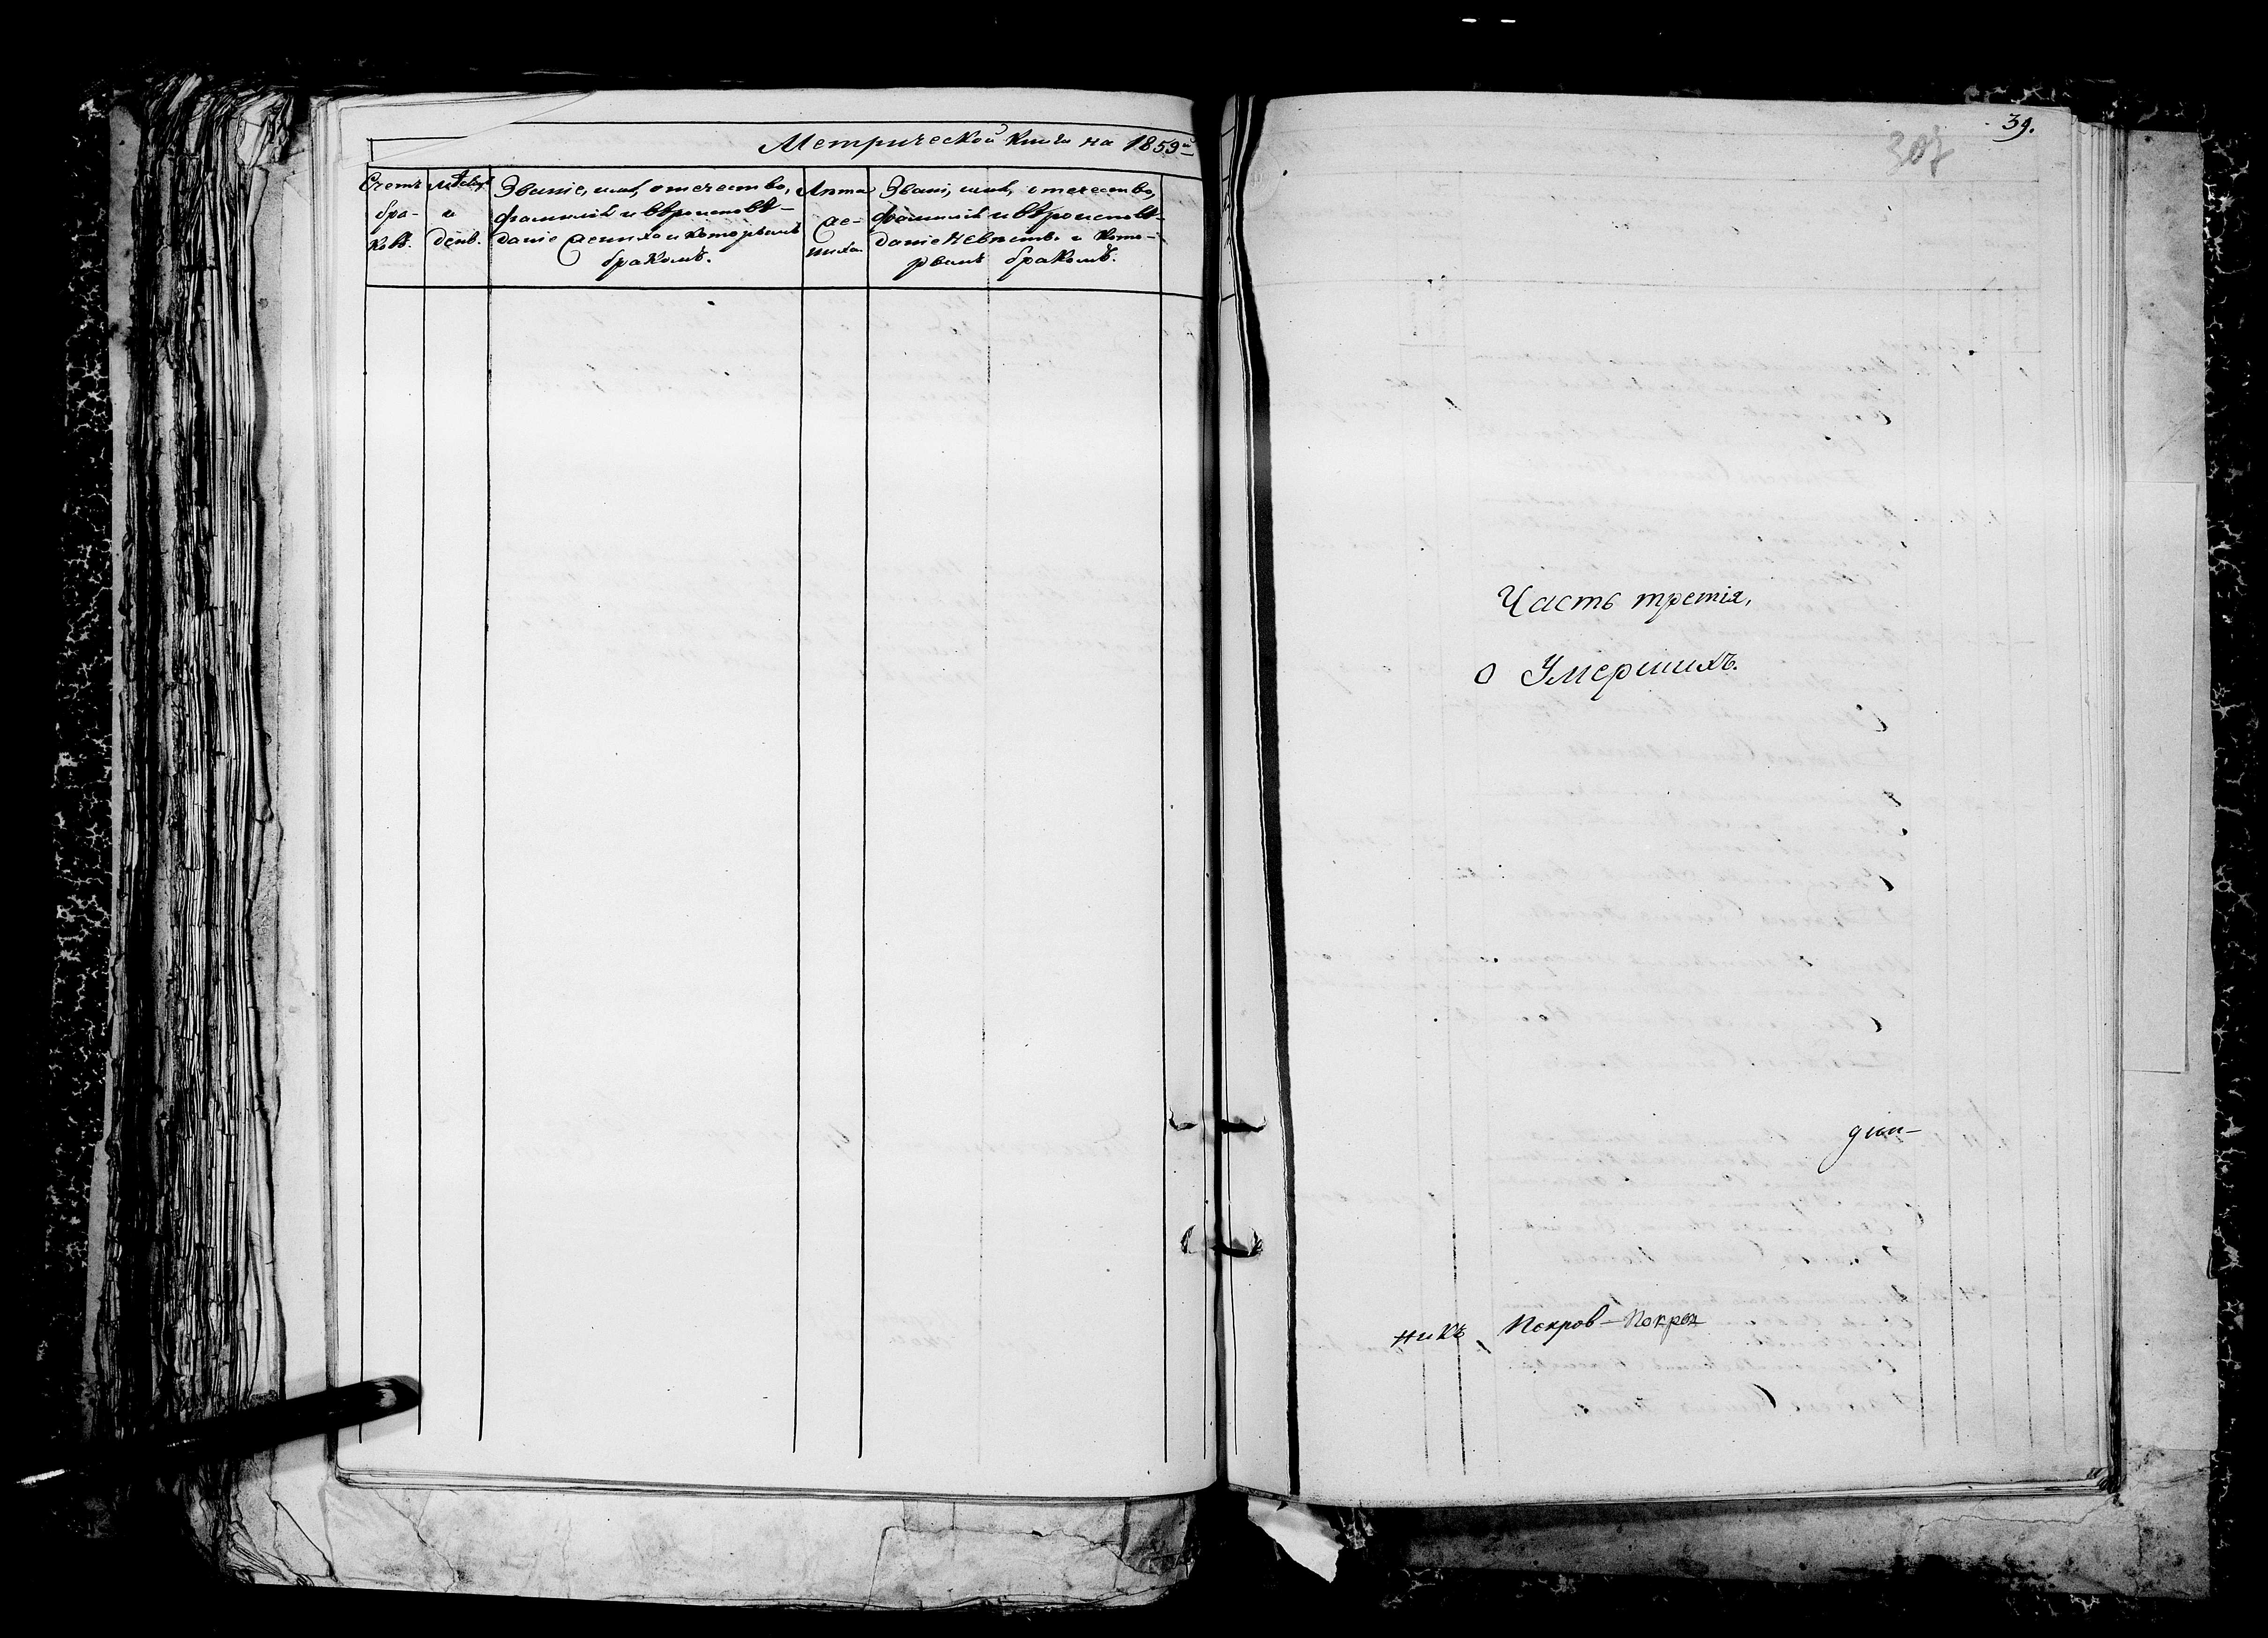 Метрической книги на 1859й
Счетъ
бра-
ковъ.
Мѣсяцъ
и
день.
Званіе, имя, отечество,
фамилія и вѣроисповѣ-
даніе жениха и которымъ
бракомъ.
Лѣта
же-
ниха
Званіе, имя, отечество,
фамилія и вѣроисповѣ-
даніе невѣсты и кото-
рымъ бракомъ.
39.
307
Часть третія,
о Умершихъ.
никъ Покров-Покров